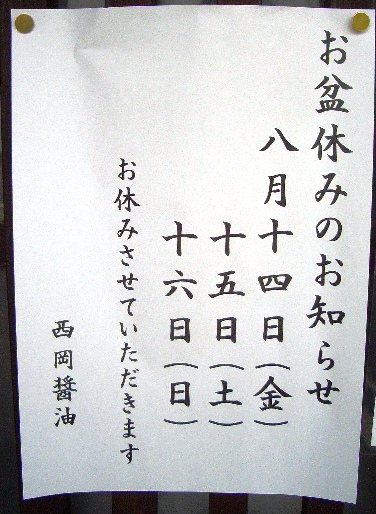 お盆休みのお知らせ
八月十四日(金)
十五日(土)
十六日(日)
お休みさせていただきます
西岡醤油